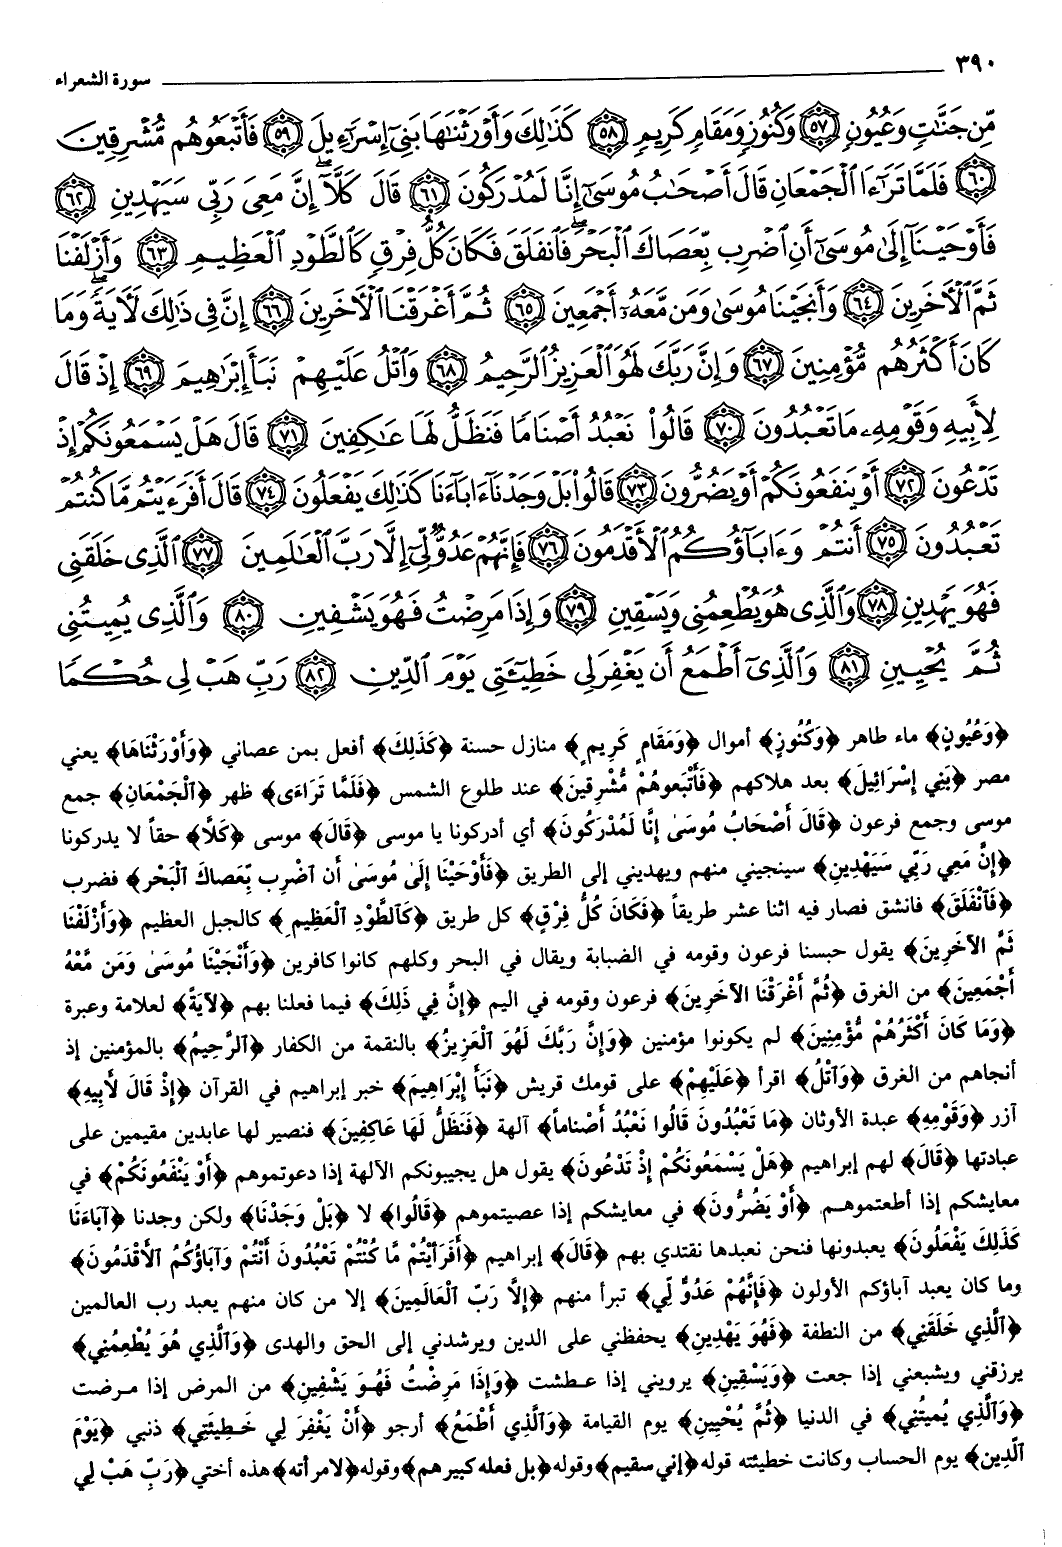 ٣٩٠ سورة الشعراء
مِّن جَنَّٰتٍ وَعُيُونٍ ٥٧ وَكُنُوزٍ وَمَقَامٍ كَرِيمٍ ٥٨ كَذَٰلِكَ وَأَوْرَثْنَٰهَا بَنِىٓ إِسْرَٰٓءِيلَ ٥٩ فَأَتْبَعُوهُم مُّشْرِقِينَ
٦٠ فَلَمَّا تَرَٰٓءَا ٱلْجَمْعَانِ قَالَ أَصْحَٰبُ مُوسَىٰٓ إِنَّا لَمُدْرَكُونَ ٦١ قَالَ كَلَّآ ۖ إِنَّ مَعِىَ رَبِّى سَيَهْدِينِ ٦٢
فَأَوْحَيْنَآ إِلَىٰ مُوسَىٰٓ أَنِ ٱضْرِب بِّعَصَاكَ ٱلْبَحْرَ ۖ فَٱنفَلَقَ فَكَانَ كُلُّ فِرْقٍ كَٱلطَّوْدِ ٱلْعَظِيمِ ٦٣ وَأَزْلَفْنَا
ثَمَّ ٱلْأَخَرِينَ ٦٤ وَأَنجَيْنَا مُوسَىٰ وَمَن مَّعَهُۥٓ أَجْمَعِينَ ٦٥ ثُمَّ أَغْرَقْنَا ٱلْأَخَرِينَ ٦٦ إِنَّ فِى ذَٰلِكَ لَأَيَةً ۖ وَمَا
كَانَ أَكْثَرُهُم مُّؤْمِنِينَ ٦٧ وَإِنَّ رَبَّكَ لَهُوَ ٱلْعَزِيزُ ٱلرَّحِيمُ ٦٨ وَٱتْلُ عَلَيْهِمْ نَبَأَ إِبْرَٰهِيمَ ٦٩ إِذْ قَالَ
لِأَبِيهِ وَقَوْمِهِۦ مَا تَعْبُدُونَ ٧٠ قَالُوا۟ نَعْبُدُ أَصْنَامًا فَنَظَلُّ لَهَا عَٰكِفِينَ ٧١ قَالَ هَلْ يَسْمَعُونَكُمْ إِذْ
تَدْعُونَ ٧٢ أَوْ يَنفَعُونَكُمْ أَوْ يَضُرُّونَ ٧٣ قَالُوا۟ بَلْ وَجَدْنَآ ءَابَآءَنَا كَذَٰلِكَ يَفْعَلُونَ ٧٤ قَالَ أَفَرَءَيْتُم مَّا كُنتُمْ
تَعْبُدُونَ ٧٥ أَنتُمْ وَءَابَآؤُكُمُ ٱلْأَقْدَمُونَ ٧٦ فَإِنَّهُمْ عَدُوٌّ لِّىٓ إِلَّا رَبَّ ٱلْعَٰلَمِينَ ٧٧ ٱلَّذِى خَلَقَنِى
فَهُوَ يَهْدِينِ ٧٨ وَٱلَّذِى هُوَ يُطْعِمُنِى وَيَسْقِينِ ٧٩ وَإِذَا مَرِضْتُ فَهُوَ يَشْفِينِ ٨٠ وَٱلَّذِى يُمِيتُنِى
ثُمَّ يُحْيِينِ ٨١ وَٱلَّذِىٓ أَطْمَعُ أَن يَغْفِرَ لِى خَطِيٓـَٔتِى يَوْمَ ٱلدِّينِ ٨٢ رَبِّ هَبْ لِى حُكْمًا
﴿وَعُيُونٍ﴾ ماء طاهر ﴿وَكُنُوزٍ﴾ أموال ﴿وَمَقَامٍ كَرِيمٍ﴾ منازل حسنة ﴿كَذَلِكَ﴾ أفعل بمن عصاني ﴿وَأَوْرَثْنَاهَا﴾ يعني
مصر ﴿بَنِي إِسْرَائِيلَ﴾ بعد هلاكهم ﴿فَأَتْبَعوهُمْ مُّشْرِقينَ﴾ عند طلوع الشمس ﴿فَلَمَّا تَرَاءَى﴾ ظهر ﴿ٱلْجَمْعَانِ﴾ جمع
موسى وجمع فرعون ﴿قَالَ أَصْحَابُ مُوسَىٰ إِنَّا لَمُدْرَكُونَ﴾ أي أدركونا يا موسى ﴿قَالَ﴾ موسى ﴿كَلَّا﴾ حقاً لا يدركونا
﴿إِنَّ مَعِي رَبِّي سَيَهْدِينِ﴾ سينجيني منهم ويهديني إلى الطريق ﴿فَأَوْحَيْنَا إِلَىٰ مُوسَىٰ أَن ٱضْرِب بِّعَصاكَ ٱلْبَحْر﴾ فضرب
﴿فَٱنْفَلَقَ﴾ فانشق فصار فيه اثنا عشر طريقاً ﴿فَكَانَ كُلُّ فِرْقٍ﴾ كل طريق ﴿كَٱلطَّوْدِ ٱلْعَظِيمِ﴾ كالجبل العظيم ﴿وَأَزْلَفْنَا
ثَمَّ الآخَرِينَ﴾ يقول حبسنا فرعون وقومه في الضبابة ويقال في البحر وكلهم كانوا كافرين ﴿وَأَنْجَيْنَا مُوسَىٰ وَمَن مَّعَهُ
أَجْمَعِينَ﴾ من الغرق ﴿ثُمَّ أَغْرَقْنَا الآخَرِينَ﴾ فرعون وقومه في اليم ﴿إِنَّ فِي ذَلِكَ﴾ فيما فعلنا بهم ﴿لآيَةً﴾ لعلامة وعبرة
﴿وَمَا كَانَ أَكْثَرُهُمْ مُّؤْمِنِينَ﴾ لم يكونوا مؤمنين ﴿وَإِنَّ رَبَّكَ لَهُوَ ٱلْعَزِيزُ﴾ بالنقمة من الكفار ﴿ٱلرَّحِيمُ﴾ بالمؤمنين إذ
أنجاهم من الغرق ﴿وَٱتْلُ﴾ اقرأ ﴿عَلَيْهِمْ﴾ على قومك قريش ﴿نَبَأَ إِبْرَاهِيمَ﴾ خبر إبراهيم في القرآن ﴿إِذْ قَالَ لأَبِيهِ﴾
آزر ﴿وَقَوْمِهِ﴾ عبدة الأوثان ﴿مَا تَعْبُدُونَ قَالُوا نَعْبُدُ أَصْنَاماً﴾ آلهة ﴿فَنَظَلُّ لَهَا عَاكِفِينَ﴾ فنصير لها عابدين مقيمين على
عبادتها ﴿قَالَ﴾ لهم إبراهيم ﴿هَلْ يَسْمَعُونَكُمْ إِذْ تَدْعُونَ﴾ يقول هل يجيبونكم الآلهة إذا دعوتموهم ﴿أَوْ يَنْفَعُونَكُمْ﴾ في
معايشكم إذا أطعتموهم ﴿أَوْ يَضُرُّونَ﴾ في معايشكم إذا عصيتموهم ﴿قَالُوا﴾ لا ﴿بَلْ وَجَدْنَا﴾ ولكن وجدنا ﴿آبَاءَنَا
كَذَلِكَ يَفْعَلُونَ﴾ يعبدونها فنحن نعبدها نقتدي بهم ﴿قَالَ﴾ إبراهيم ﴿أَفَرَأَيْتُمْ مَّا كُنْتُمْ تَعْبُدُونَ أَنْتُمْ وَآبَاؤُكُمُ ٱلأَقْدَمُونَ﴾
وما كان يعبد آباؤكم الأولون ﴿فَإِنَّهُمْ عَدُوٌّ لِّي﴾ تبرأ منهم ﴿إِلاَّ رَبَّ ٱلْعَالَمِينَ﴾ إلا من كان منهم يعبد رب العالمين
﴿ٱلَّذِي خَلَقَنِي﴾ من النطفة ﴿فَهُوَ يَهْدِينِ﴾ يحفظني على الدين ويرشدني إلى الحق والهدى ﴿وَٱلَّذِي هُوَ يُطْعِمُنِي﴾
يرزقني ويشبعني إذا جعت ﴿وَيَسْقِينِ﴾ يرويني إذا عطشت ﴿وَإِذَا مَرِضْتُ فَهُوَ يَشْفِينِ﴾ من المرض إذا مرضت
﴿وَٱلَّذِي يُمِيتُنِي﴾ في الدنيا ﴿ثُمَّ يُحْيِينِ﴾ يوم القيامة ﴿وَٱلَّذِي أَطْمَعُ﴾ أرجو ﴿أَنْ يَغْفِرَ لِي خَطِيئَتِي﴾ ذنبي ﴿يَوْمَ
ٱلدِّينِ﴾ يوم الحساب وكانت خطيئته قوله ﴿إني سقيم﴾ وقوله ﴿بل فعله كبيرهم﴾ وقوله ﴿لامرأته﴾ هذه أختي ﴿رَبِّ هَبْ لِي